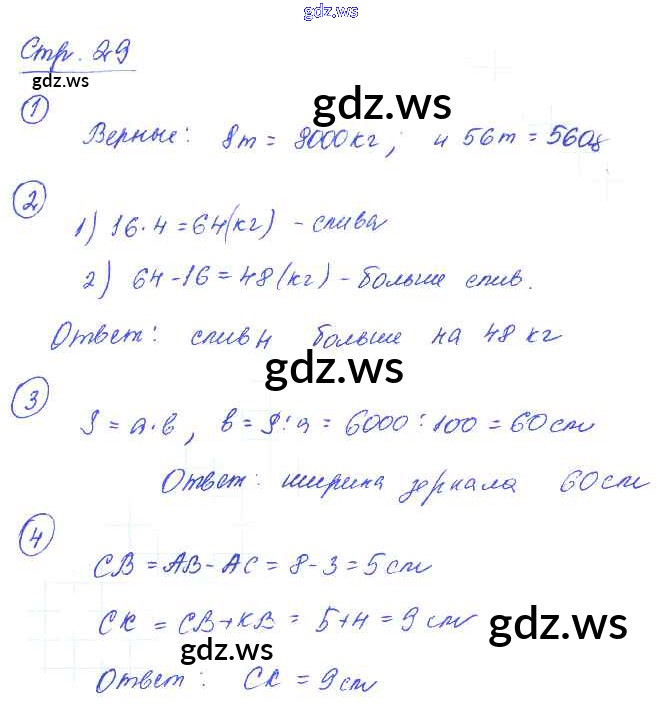 gdz.ws
Стр. 29
gdz.ws
gdz.ws
① Верные: 8т = 8000кг; и 56т = 560ц
② 1) 16·4=64(кг) – слива
2) 64-16=48(кг) – больше слив.
Ответ: слив больше на 48 кг
gdz.ws
③ S = а·в, в = S:а = 6000:100 = 60см
Ответ: ширина зеркала 60см
④ СВ = АВ - АС = 8 - 3 = 5 см
СК = СВ+КВ = 5+4 = 9 см
gdz.ws
gdz.ws
Ответ: СК = 9 см